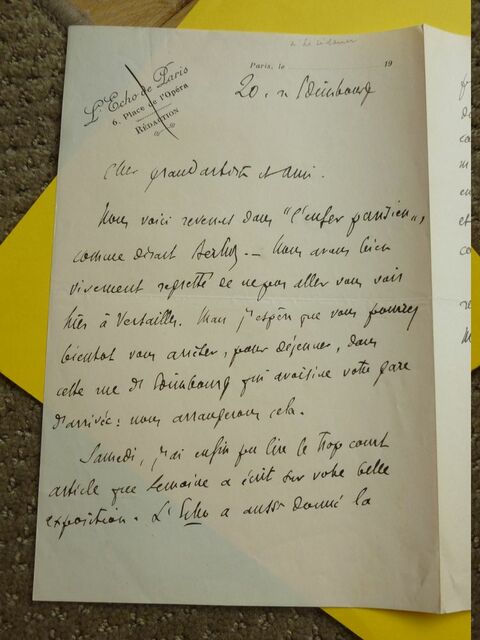 L'Echo de Paris
6, Place de l'Opéra
RÉDACTION
Paris, le 19
20, r. d'Edimbourg
Cher grand artiste et ami.
Nous voici revenus dans "l'enfer parisien",
comme disait Berlioz. — Nous avons bien
vivement regretté de ne pas aller vous voir
hier à Versailles. Mais j'espère que vous pourrez
bientôt vous arrêter, pour déjeuner, dans
cette rue d'Edimbourg qui avoisine votre gare
d'arrivée : nous arrangerons cela.
Samedi, j'ai enfin pu lire le trop court
article que Lemoine a écrit sur votre belle
exposition. L'Echo a aussi donné la